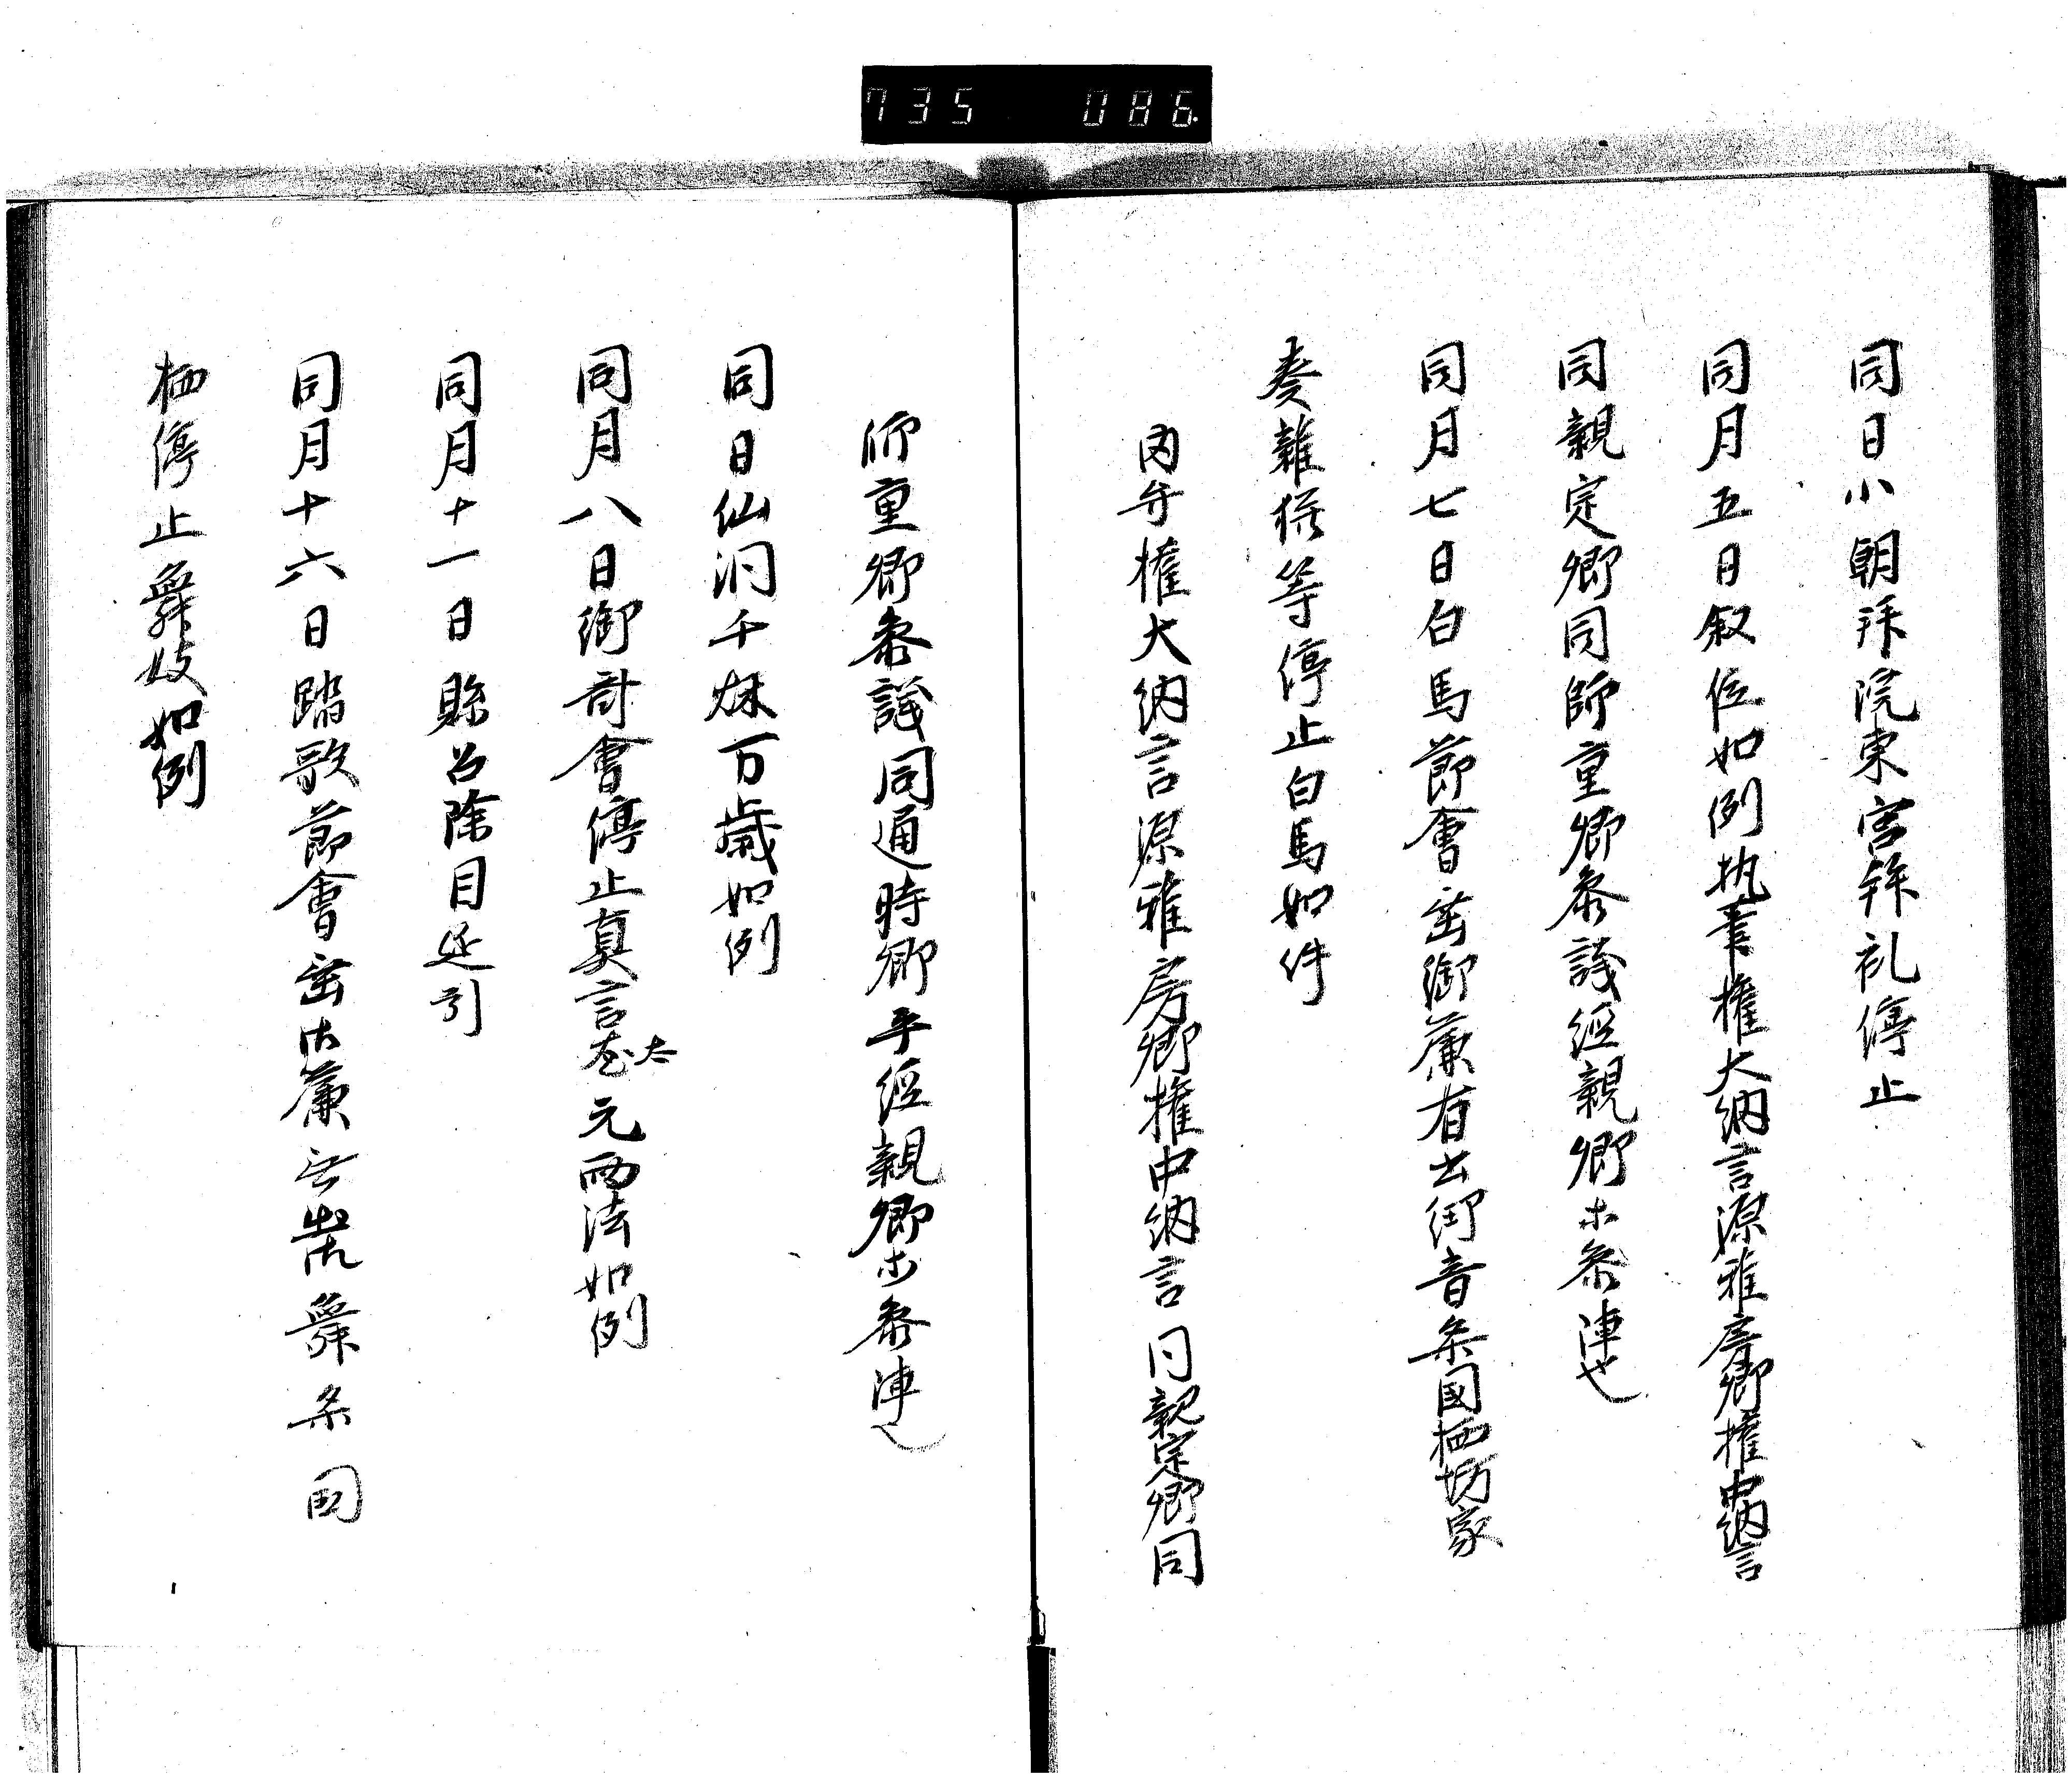 735 086
同日小朝拝院東宮拝礼停止
同月五日叙位如例执筆権大納言源雅房卿権中納言
同親定卿同師重卿参議経親卿木参陣也
同月七日白馬節會垂御簾有出御音楽國栖坊家
奏雑揺等停止白馬如件
内弁権大納言源雅房卿権中納言同親定卿同
師重卿参議同通時卿平経親卿木参陣也
同日仙洞千秋万歳如例
同月八日御哥會停止真言太元両法如例
同月十一日縣召除目延引
同月十六日踏歌節會垂御簾無出御舞楽國
栖停止舞妓如例